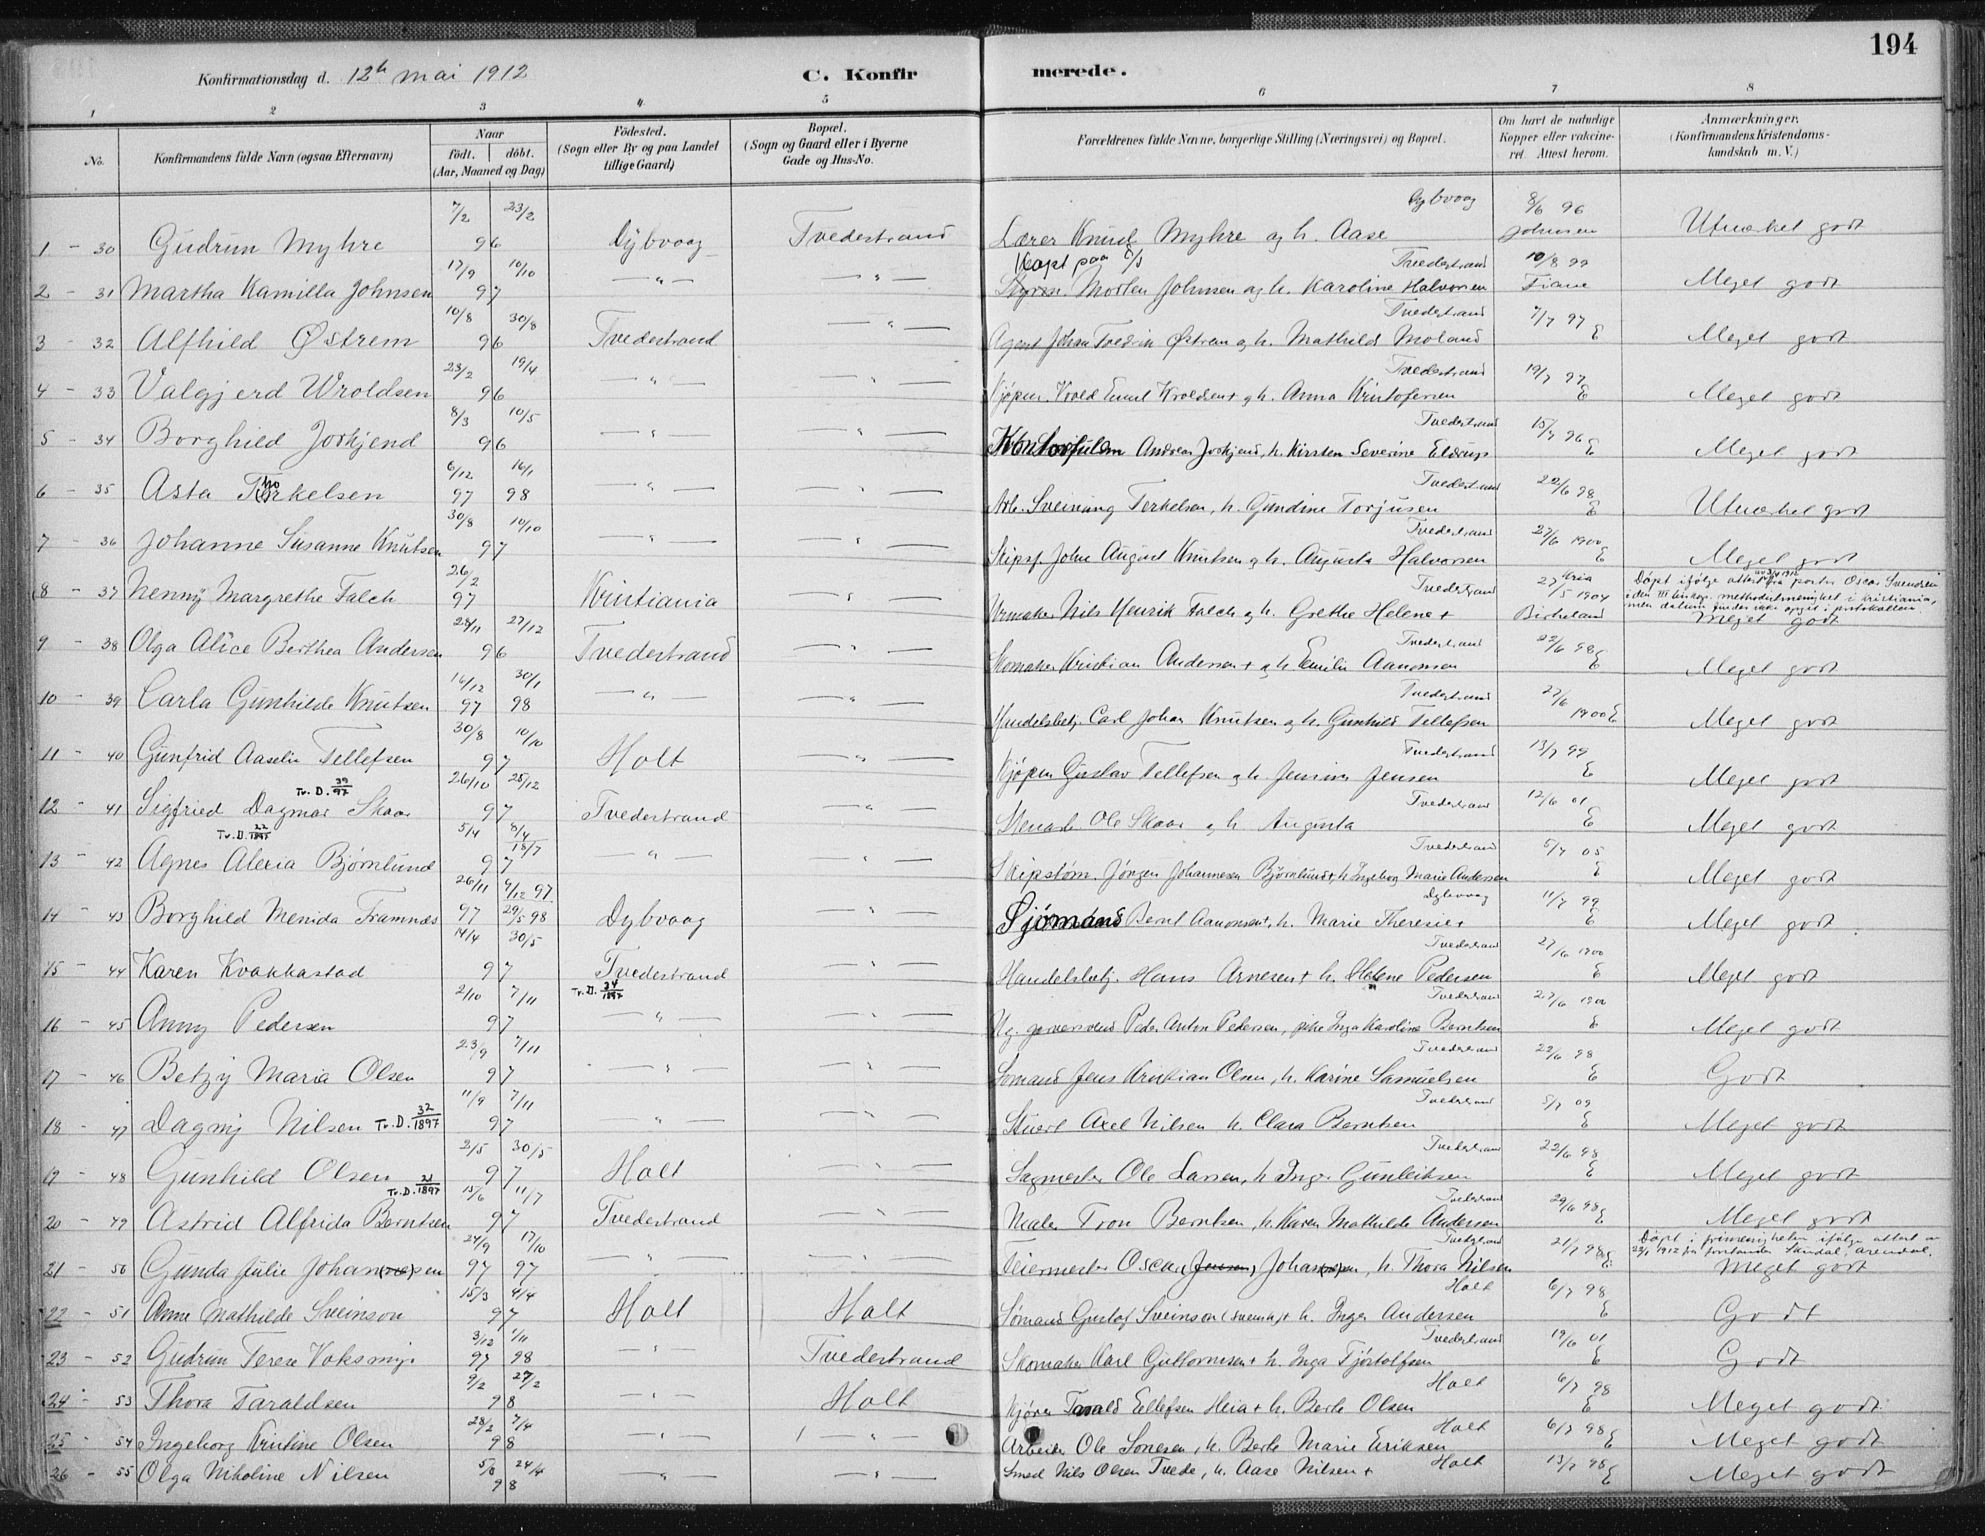 194
Konfirmationsdag d. 12te mai 1912 C. Konfirmerede.
1 2 3 4 5 6 7 8
No. Konfirmandens fulde Navn (ogsaa Efternavn) Naar födt. döbt. (Aar, Maaned og Dag) Födested. (Sogn eller By og paa Landet tillige Gaard) Bopæl. (Sogn og Gaard eller i Byerne Gade og Hus-No. Forældrenes fulde Navne, borgerlige Stilling (Næringsvei) og Bopæl. Om havt de naturlige Kopper eller vakcineret. Attest herom. Anmærkninger. (Konfirmandens Kristendomskundskab m. V.)
1 - 30 Gudrun Myhre 7/2 23/2 96 Dybvaag Tvedestrand Lærer Knud Myhre og h. Aase Dybvaag 8/6 96 Johnsen Utmerket godt
2 - 31 Martha Kamilla Johnsen 17/9 10/10 97 — " — — " — Kapt paa D/S Styrm. Morten Johnsen og h. Karoline Halvorsen Tvedestrand 10/8 99 Fiane Meget godt
3 - 32 Alfhild Østrem 10/8 30/8 96 Tvedestrand — " — Agent Johan Fredrik Østrem og h. Mathilde Moland Tvedestrand 7/7 97 E Meget godt
4 - 33 Valgjerd Wroldsen 23/2 19/4 96 — " — — " — Kjøpm. Emil Wroldsen + og h. Anna Kristofersen Tvedestrand 19/7 97 E Meget godt
5 - 34 Borghild Jorkjend 8/3 10/5 96 — " — — " — Andreas Jorkjend, h. Kirsten Severine Eldrup Tvedestrand 15/7 96 E Meget godt
6 - 35 Asta Torkelsen 6/12 16/1 97 98 — " — — " — Arb. Sveinung Terkelsen, h. Gundine Torjusen Tvedestrand 22/6 98 E Utmerket godt
7 - 36 Johanne Susanne Knutsen 30/8 10/10 97 — " — — " — Skipsf. John August Knutsen og h. Augusta Halvorsen Tvedestrand 27/6 1900 E Meget godt
8 - 37 Nenny Margrethe Falch 26/2 97 Kristiania — " — Urmaker Nils Henrik Falch og h. Grethe Helene + Tvedestrand 27/5 1904 Kria Birkeland Døpt ifølge attest av 3/4 1912 fra pastor Oscar Svendsen i den III biskop. methodistmenighet i Kristiania, men datum findes ikke opgit i protokollen. Meget godt
9 - 38 Olga Alice Berthea Andersen 28/11 27/12 96 Tvedestrand — " — Skomaker Kristian Andersen + og h. Emilie Aanonsen Tvedestrand 22/6 98 E Meget godt
10 - 39 Carla Gunhilde Knutsen 16/12 30/1 97 98 — " — — " — Handelsbetj. Carl Johan Knutsen og h. Gunhild Tellefsen Tvedestrand 27/6 1900 E Meget godt
11 - 40 Gunfrid Aaselie Tellefsen 30/8 10/10 97 Holt — " — Kjøpm Gustav Tellefsen og h. Jensine Jensen Tvedestrand 13/7 99 E Meget godt
12 - 41 Sigfried Dagmar Skaar Tv. D. 39/97 26/10 25/12 97 Tvedestrand — " — Ole Skaar og h Augusta Tvedestrand 12/6 01 E Meget godt
13 - 42 Agnes Alexia Bjørnlund Tv. D. 22/1897 5/4 8/4 18/7 97 — " — — " — Skipstøm. Jørgen Johannesen Bjørnlund +, h Ingeborg Marie Andersen Tvedestrand 5/7 05 E Meget godt
14 - 43 Borghild Menida Framnæs 26/11 4/12 97 97 29/5 98 Dybvaag — " — Sjømand Bernt Aanonsen +, h. Marie Theresie + Dybvaag 11/7 99 E Meget godt
15 - 44 Karen Kvakkestad 14/4 30/5 97 Tvedestrand — " — Handelsbetj. Hans Arnesen + h. Helene Pedersen Tvedestrand 27/6 1900 E Meget godt
16 - 45 Anny Pedersen 2/10 7/11 97 Tv. D. 34/1897 — " — — " — Ug. garversvend Peder Anton Pedersen, pike Inga Karoline Berntsen Tvedestrand 27/6 1900 E Meget godt
17 - 46 Betzy Maria Olsen 23/9 7/11 97 — " — — " — Sømand Jens Kristian Olsen, h. Karine Samuelsen Tvedestrand 22/6 98 E Godt
18 - 47 Dagny Nilsen Tv. D. 32/1897 11/9 7/11 97 — " — — " — Stuert Axel Nilsen h. Clara Berntsen Tvedestrand 5/7 09 E Meget godt
19 - 48 Gunhild Olsen 2/5 30/5 97 Holt — " — Sagmester Ole Larsen, h Inge Gunleiksen Tvedestrand 22/6 98 E Meget godt
20 - 49 Astrid Alfrida Berntsen Tv. D. 21/1897 15/6 11/7 97 Tvedestrand — " — Maler Tron Berntsen, h. Karen Mathilde Andersen Tvedestrand 29/6 98 E Meget godt
21 - 50 Gunda Julie Johansen 24/9 17/10 97 97 — " — — " — Feiermester Oscar (Jensen) Johansen, h. Thora Nilsen Tvedestrand 21/7 98 E Døpt i frimenigheten ifølge attest av 22/1 1912 fra forstander Sandal, Arendal. Meget godt
22 - 51 Anne Mathilde Sveinson 15/3 4/4 97 Holt Holt Sømand Gustaf Sveinson (svensk) + h. Inger Andersen Holt 6/7 98 E Godt
23 - 52 Gudrun Terese Voksmyr 3/12 1/11 97 98 — " — Tvedestrand Skomaker Karl Guttormsen + h. Inga Fjørtolfsen Tvedestrand 19/6 01 E Godt
24 - 53 Thora Taraldsen 9/2 27/2 98 — " — Holt Kjører Tarald Ellefsen Heia + h. Berte Olsen Holt 6/7 98 E Meget godt
25 - 54 Ingeborg Kristine Olsen 28/2 7/4 98 — " — — " — Arbeider Ole Sonesen, h. Berte Marie Eriksen Holt 6/7 98 E Meget godt
26 - 55 Olga Nikoline Nilsen 5/3 24/4 98 — " — — " — Smed Nils Olsen Tvede, h. Aase Nilsen + Holt 13/7 98 E Meget godt